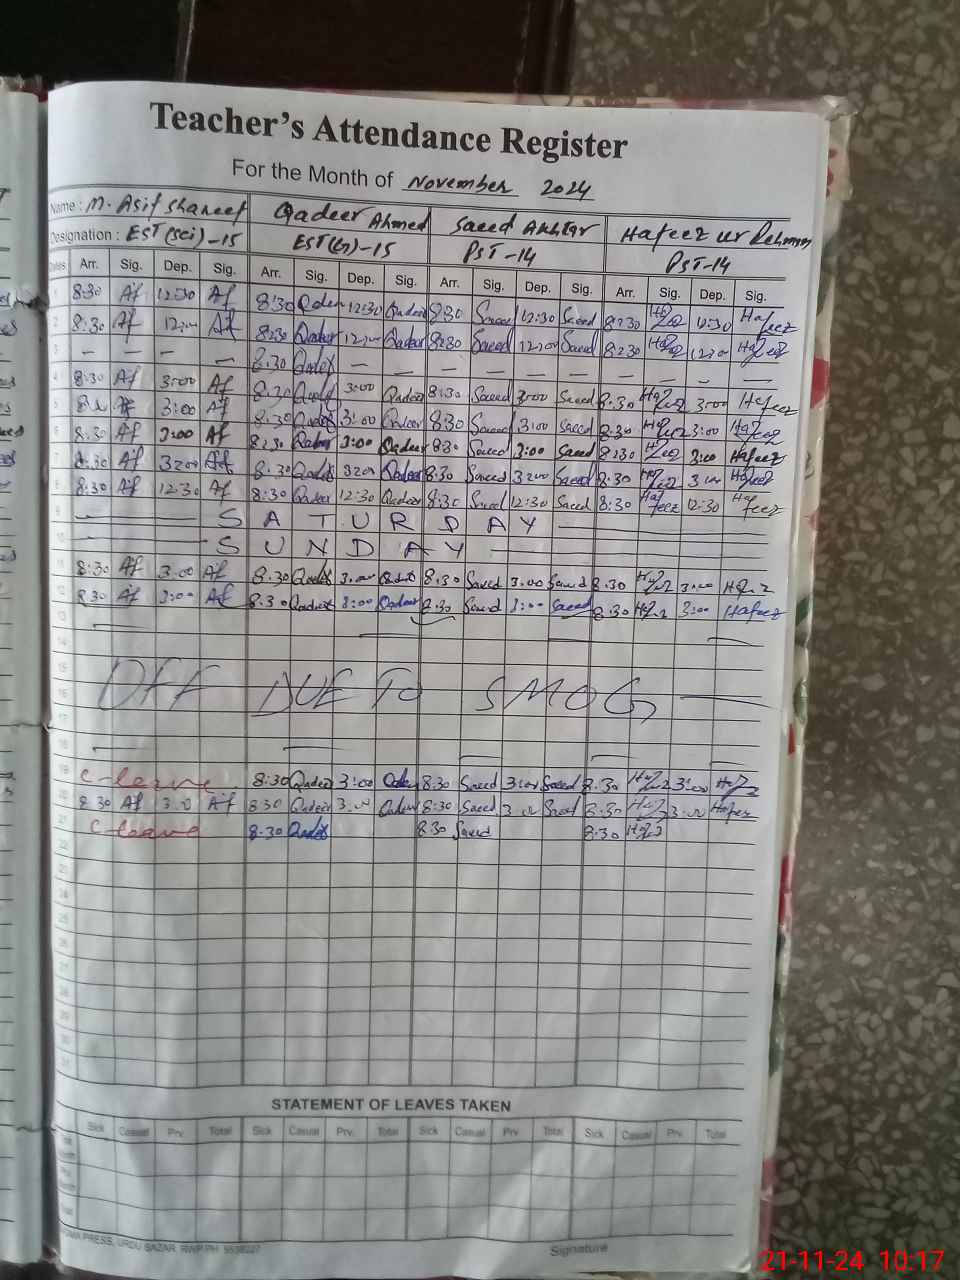 Teacher's Attendance Register
For the Month of November 2024
Name : M. Asif Shareef Qadeer Ahmed Saeed Akhtar Hafeez ur Rehman
Designation : EST (Sci) -15 EST(G)-15 PST-14 PST-14
Dates Arr. Sig. Dep. Sig. Arr. Sig. Dep. Sig. Arr. Sig. Dep. Sig. Arr. Sig. Dep. Sig.
1 8:30 Af 12:30 Af 8:30 Qadeer 12:30 Qadeer 8:30 Saeed 12:30 Saeed 8:30 Hafeez 12:30 Hafeez
2 8:30 Af 12:00 Af 8:30 Qadeer 12:00 Qadeer 8:30 Saeed 12:00 Saeed 8:30 Hafeez 12:00 Hafeez
3 — — — — 8:30 Qadeer — — — — — — — — — —
4 8:30 Af 3:00 Af 8:30 Qadeer 3:00 Qadeer 8:30 Saeed 3:00 Saeed 8:30 Hafeez 3:00 Hafeez
5 Af 3:00 Af 8:30 Qadeer 3:00 Qadeer 8:30 Saeed 3:00 Saeed 8:30 Hafeez 3:00 Hafeez
6 8:30 Af 3:00 Af 8:30 Qadeer 3:00 Qadeer 8:30 Saeed 3:00 Saeed 8:30 Hafeez 3:00 Hafeez
7 8:30 Af 3:00 Af 8:30 Qadeer 3:00 Qadeer 8:30 Saeed 3:00 Saeed 8:30 Hafeez 3:00 Hafeez
8 8:30 Af 12:30 Af 8:30 Qadeer 12:30 Qadeer 8:30 Saeed 12:30 Saeed 8:30 Hafeez 12:30 Hafeez
9 SATURDAY
10 SUNDAY
11 8:30 Af 3:00 Af 8:30 Qadeer 3:00 Qadeer 8:30 Saeed 3:00 Saeed 8:30 Hafeez 3:00 Hafeez
12 8:30 Af 3:00 Af 8:30 Qadeer 3:00 Qadeer 8:30 Saeed 3:00 Saeed 8:30 Hafeez 3:00 Hafeez
13
14
15
16 OFF DUE TO SMOG
17
18
19 C-leave 8:30 Qadeer 3:00 Qadeer 8:30 Saeed 3:00 Saeed 8:30 Hafeez 3:00 Hafeez
20 8:30 Af 3:00 Af 8:30 Qadeer 3:00 Qadeer 8:30 Saeed 3:00 Saeed 8:30 Hafeez 3:00 Hafeez
21 C-leave 8:30 Qadeer 8:30 Saeed 8:30 Hafeez
22
23
24
25
26
27
28
29
30
31
STATEMENT OF LEAVES TAKEN
Sick Casual Prv. Total Sick Casual Prv. Total Sick Casual Prv. Total Sick Casual Prv. Total
PRESS, URDU BAZAR, RWP.PH 5539227 Signature
21-11-24 10:17